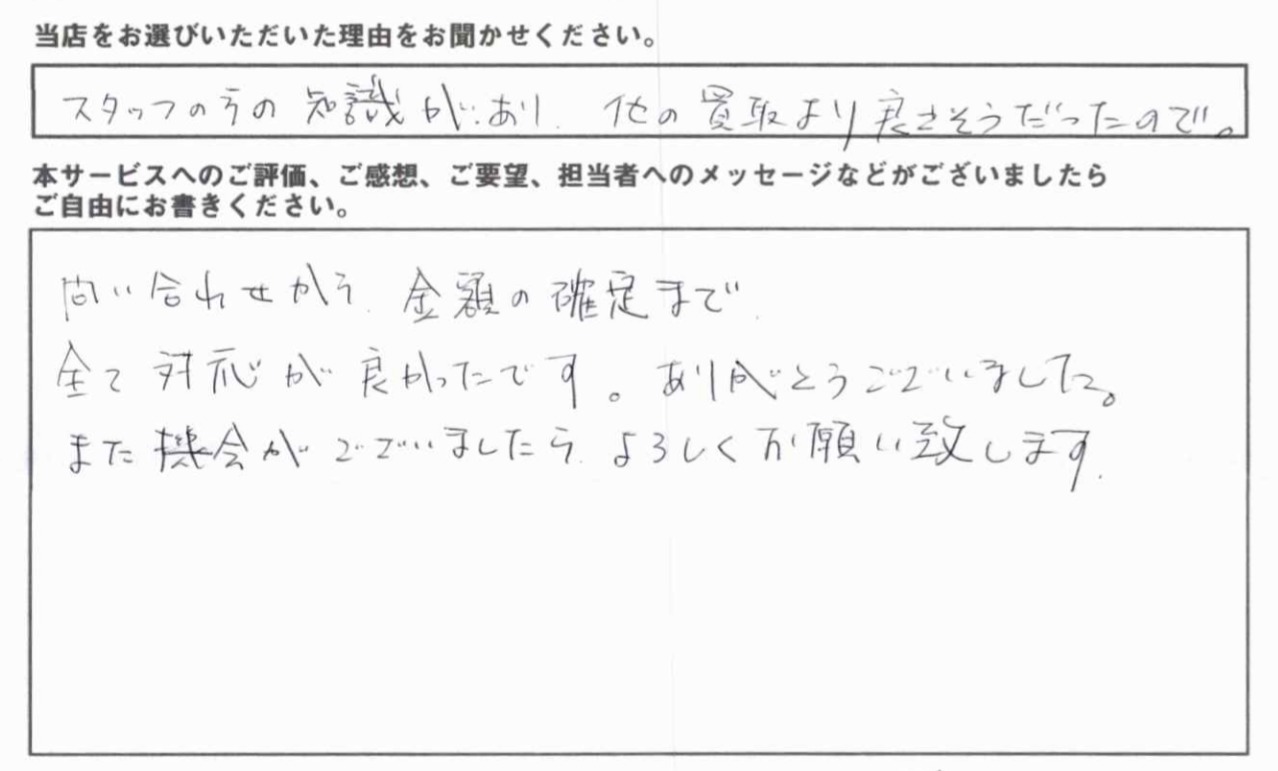 当店をお選びいただいた理由をお聞かせください。
スタッフの方の知識があり、他の買取より良さそうだったので。
本サービスへのご評価、ご感想、ご要望、担当者へのメッセージなどがございましたら
ご自由にお書きください。
問い合わせから、金額の確定まで、
全て対応が良かったです。ありがとうございました。
また機会がございましたら、よろしくお願い致します。